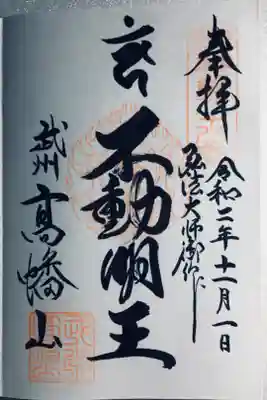 奉拝
令和二年十一月一日
弘法大師御作
不動明王
武州
高幡山